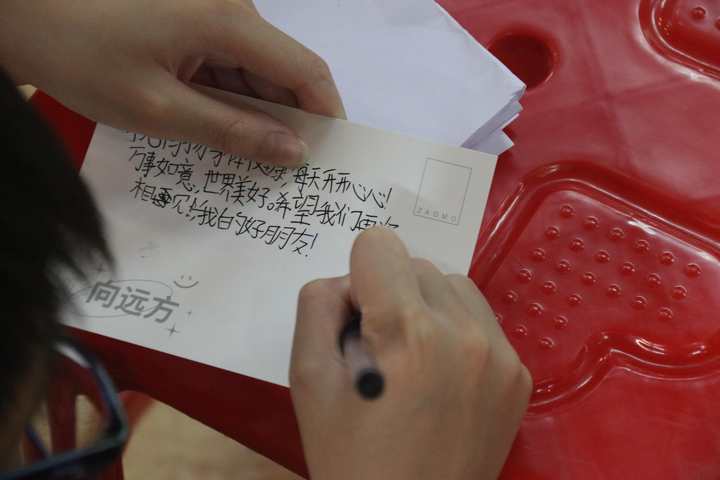 身体健康,每天开开心心!
万事如意,世界美好。希望我们再次
相见!,我的好朋友!
ZAOMO
向远方